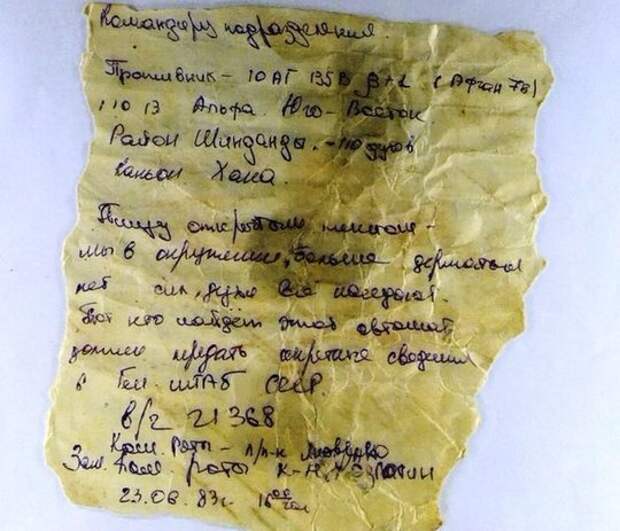 Командиру подразделения.
Противник - 10 АГ 135В (Афган 78)
110 13 Альфа. Юго-Восток.
Район Шинданды. - 110 духов
Каньон Хана.
Пишу открытым текстом -
мы в окружении, больше держаться
нет сил, духи все наседают.
Тот кто найдёт этот автомат,
должен передать секретные сведения
в Ген. штаб СССР.
в/ч 21368
Ком. Роты - п/п-к Яковенко
Зам. Ком. роты к-н
23.06.83г. 16